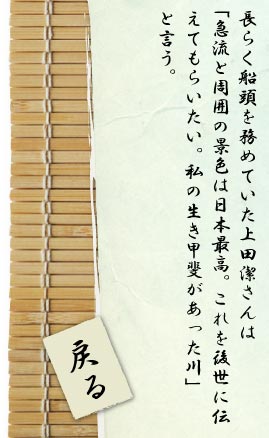 長らく船頭を務めていた上田潔さんは
「急流と周囲の景色は日本最高。これを後世に伝
えてもらいたい。私の生き甲斐があった川」
と言う。
戻る